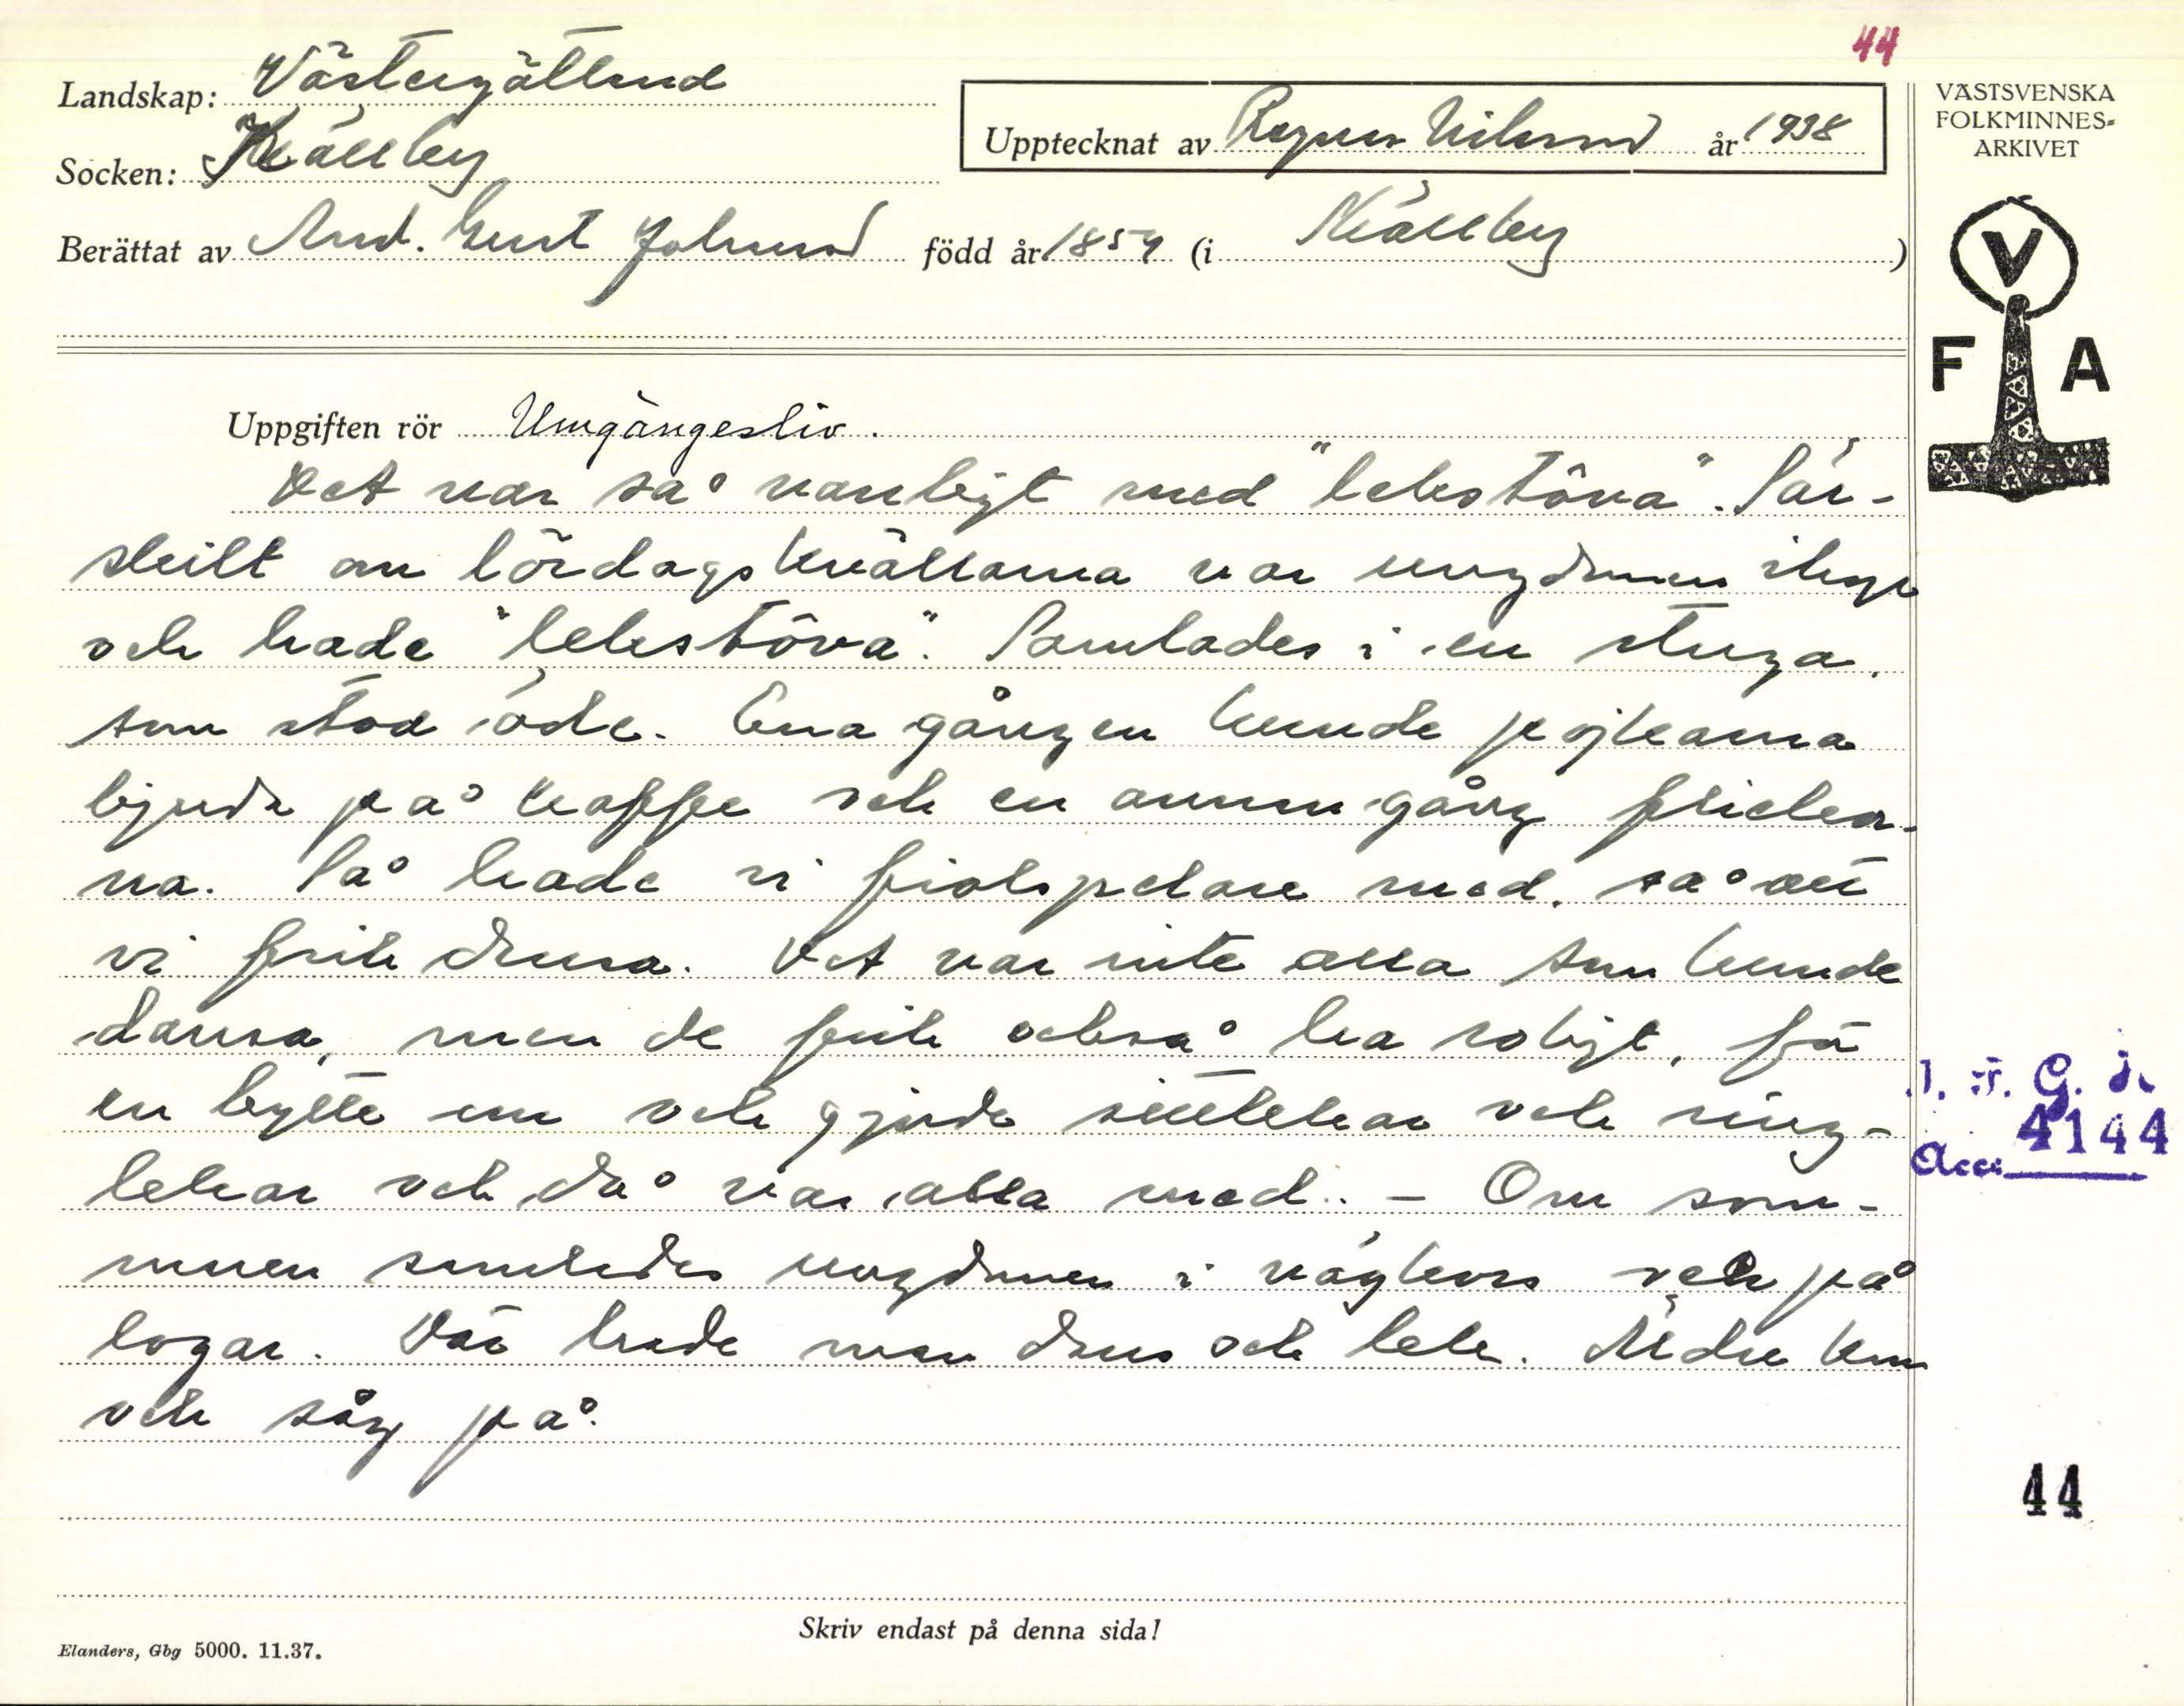 44
Landskap: Västergötland
Socken: Källby
Upptecknat av Ragnar Nilsson år 1938
Berättat av And. Gust Johansson född år 1854 (i Källby)
VÄSTSVENSKA
FOLKMINNES-
ARKIVET
V
F A
Uppgiften rör Umgängesliv.
Det var så vanligt med "lekstôva". Sär-
skilt om lördagskvällarna var ungdomen ihop
och hade "lekstôva". Samlades i en stuga,
som stod öde. Ena gången kunde pojkarna
bjuda på kaffe och en annan gång flickor-
na. Så hade vi fiolspelare med, så att
vi fick dansa. Det var inte alla som kunde
dansa, men de fick också ha roligt, för
en bytte om och gjorde sittlekar och ring-
lekar och då var alla med. - Om som-
maren samlades ungdomen i vägkors och på
logar. Där hade man dans och lek. Äldre kom
och såg på.
I. F. G. H.
Acc. 4144
44
Skriv endast på denna sida!
Elanders, Gbg 5000. 11.37.